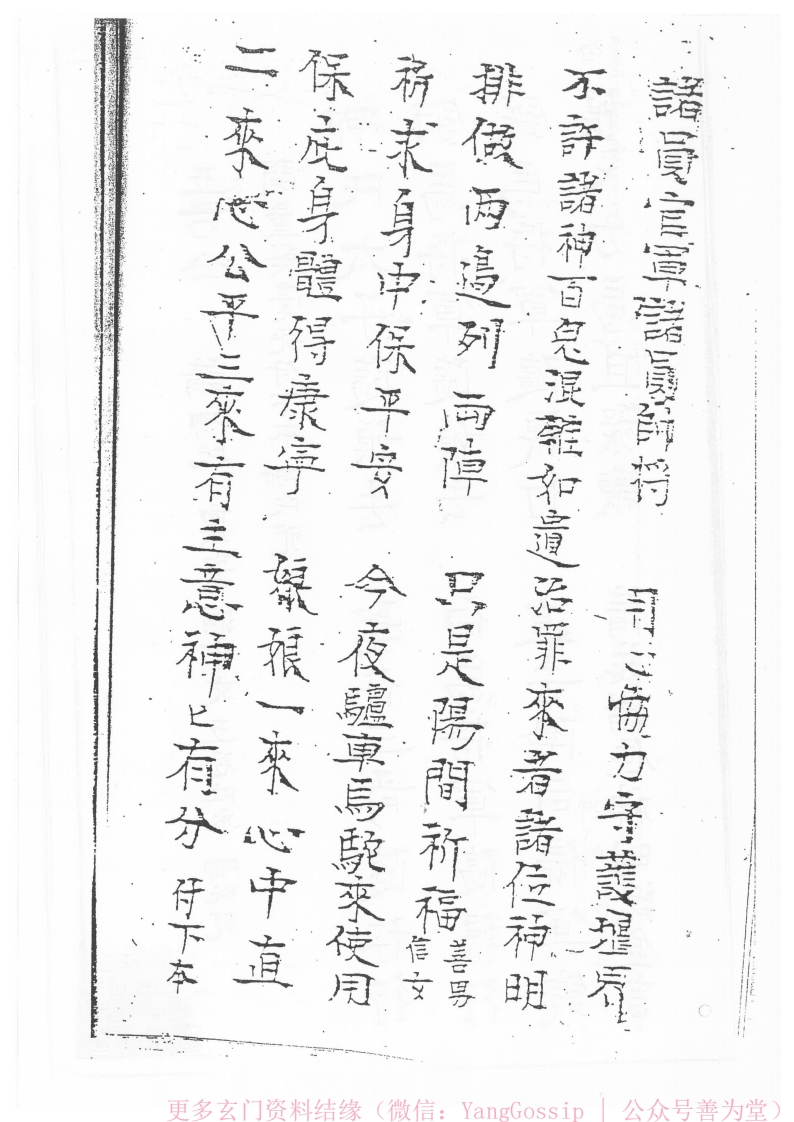 諸員官軍諸員帥将 同心齊力守護壇界
不許諸神百鬼混雜如遺治罪來者諸位神明
排做两邉列両陣 只是陽間祈福善男信女
祈求身中保平安 今夜驢車馬駝來使用
保庇身體得康寧 一來心中直
二來心公平三來有主意神匕有分 仔下本
更多玄门资料结缘（微信：YangGossip | 公众号善为堂）